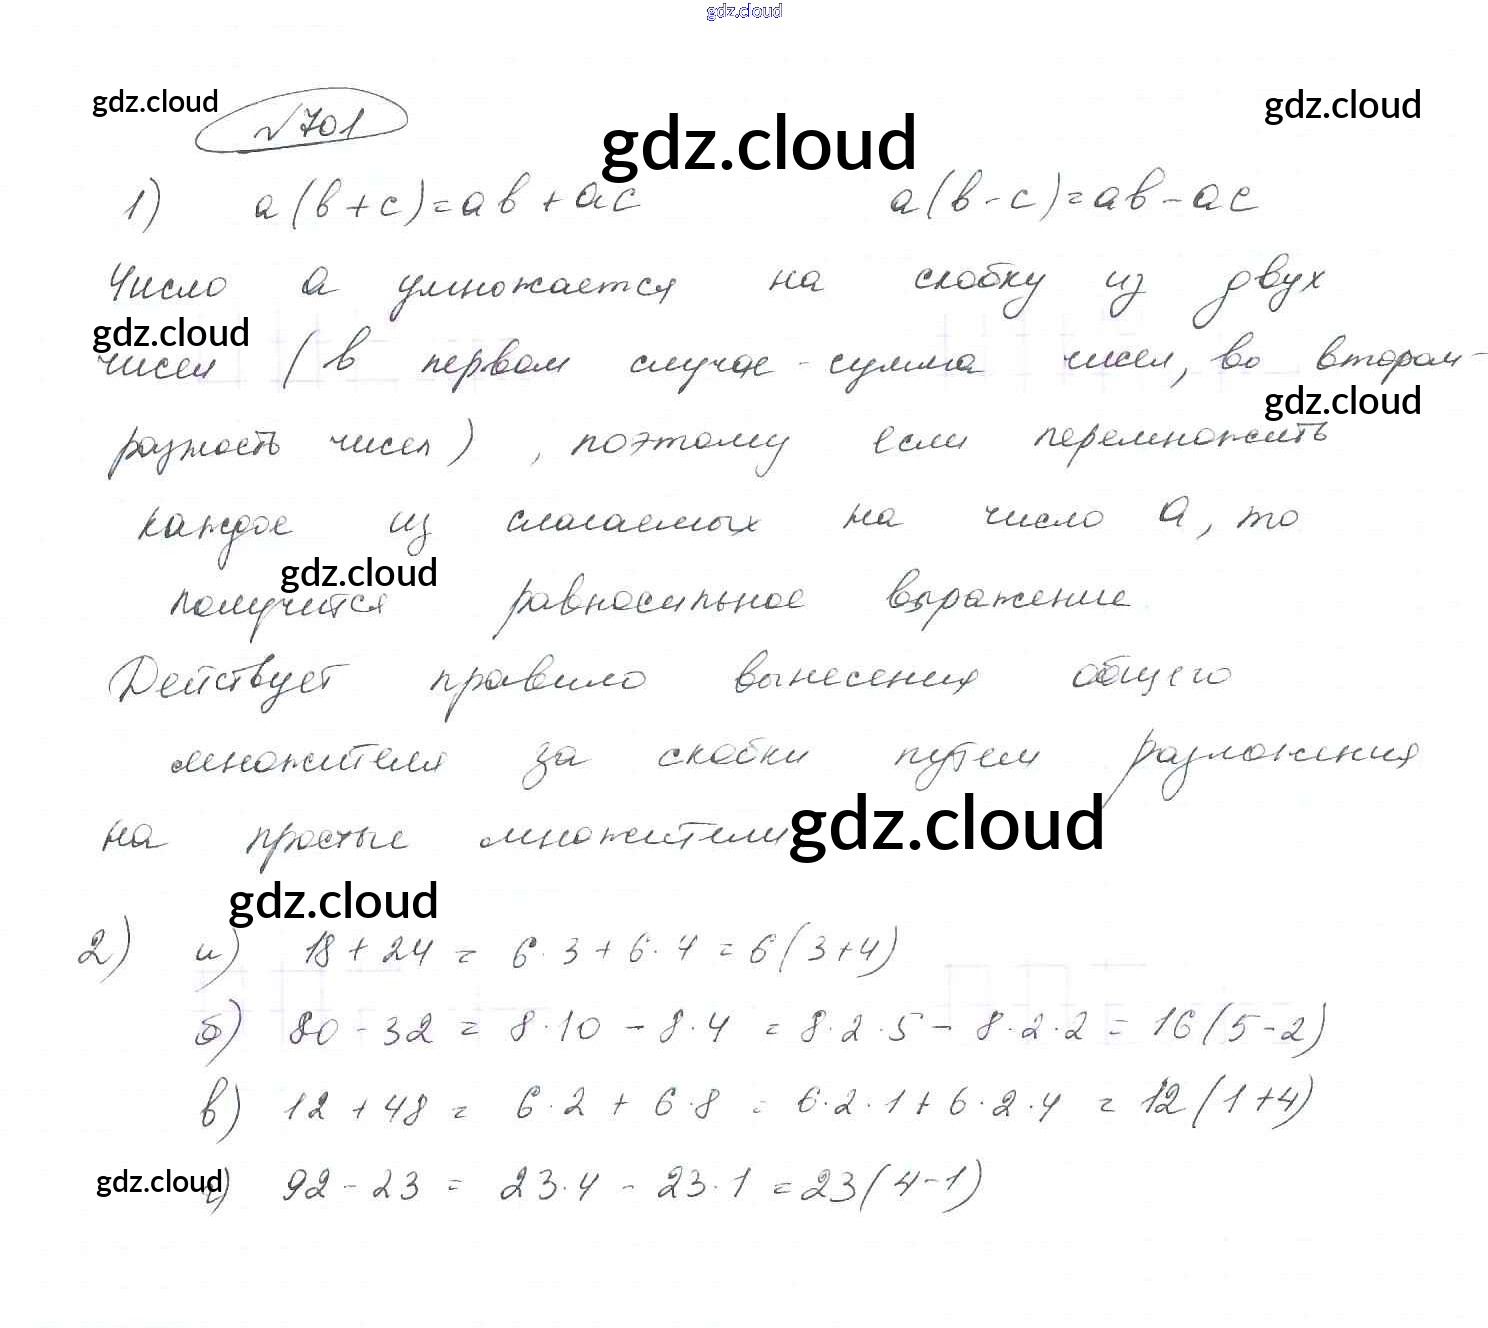 gdz.cloud
gdz.cloud
№701
gdz.cloud
gdz.cloud
1) a(b+c)=ab+ac a(b-c)=ab-ac
Число a умножается на скобку из двух
gdz.cloud
чисел (в первом случае - сумма чисел, во втором-
gdz.cloud
разность чисел), поэтому если перемножить
каждое из слагаемых на число a, то
gdz.cloud
получится равносильное выражение
Действует правило вынесения общего
множителя за скобки путем разложения
на простые множители
gdz.cloud
gdz.cloud
2) а) 18+24 = 6·3+6·4=6(3+4)
б) 80-32 = 8·10-8·4 = 8·2·5-8·2·2 = 16(5-2)
в) 12+48 = 6·2+6·8 = 6·2·1+6·2·4 = 12(1+4)
gdz.cloud
г) 92-23 = 23·4-23·1=23(4-1)